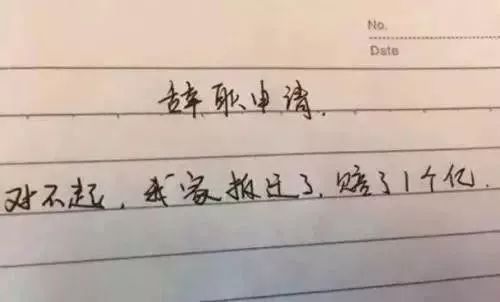 No.
Date
辞职申请.
对不起,我家拆迁了,赔了1个亿.